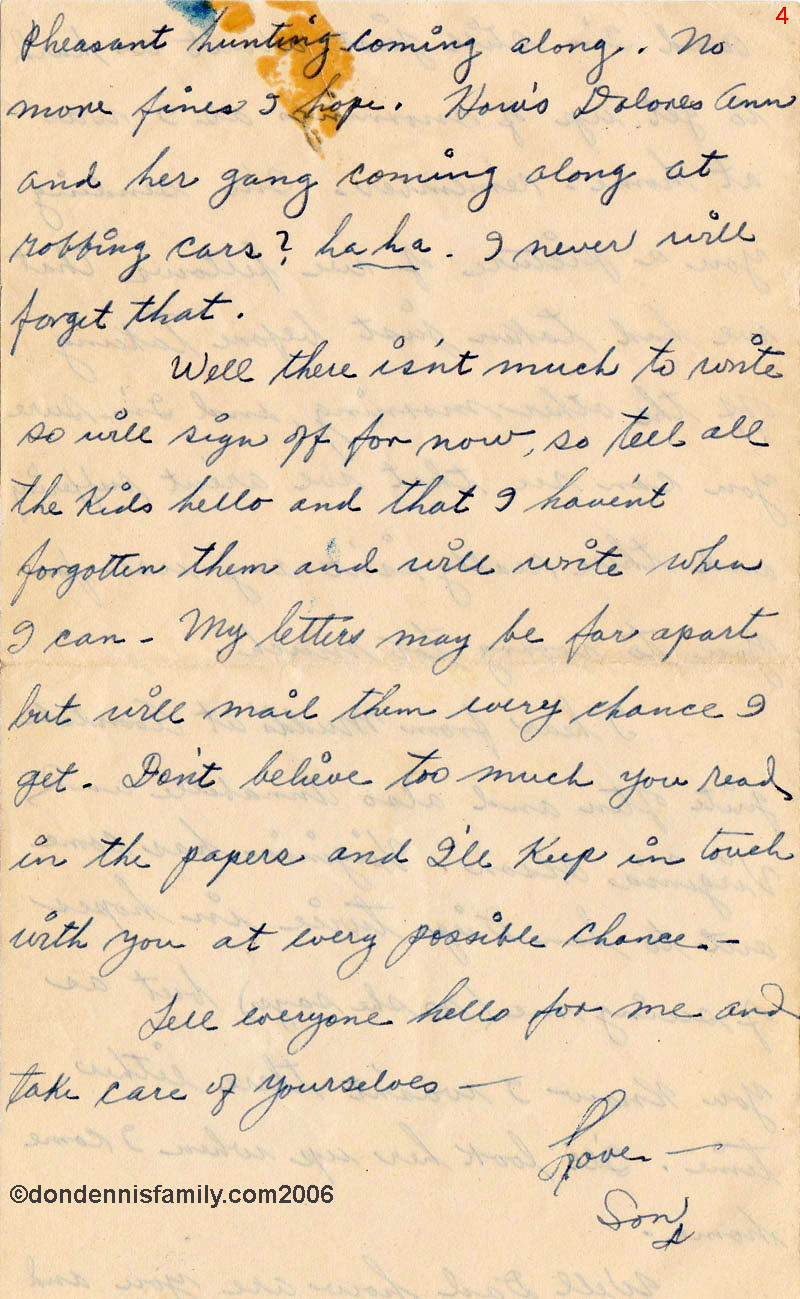 4
Pheasant hunting coming along. No
more fines I hope. How's Dolores Ann
and her gang coming along at
robbing cars? ha ha. I never will
forget that.
Well there isn't much to write
so will sign off for now, so tell all
the Kids hello and that I haven't
forgotten them and will write when
I can - My letters may be far apart
but will mail them every chance I
get. Don't believe too much you read
in the papers and I'll Keep in touch
with you at every possible chance. -
Tell everyone hello for me and
take care of yourselves -
Love -
Son
©dondennisfamily.com2006